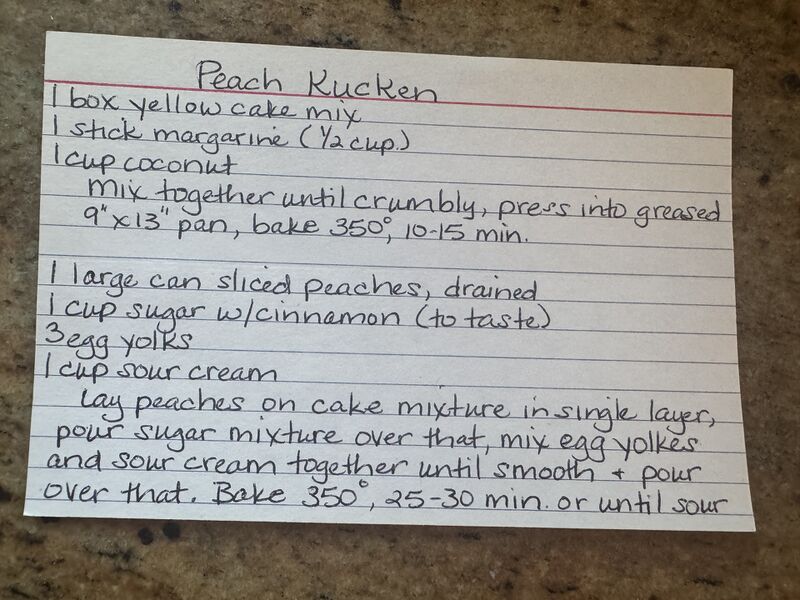 Peach Kucken
1 box yellow cake mix
1 stick margarine (1/2 cup.)
1 cup coconut
mix together until crumbly, press into greased
9"x13" pan, bake 350°, 10-15 min.
1 large can sliced peaches, drained
1 cup sugar w/cinnamon (to taste)
3 egg yolks
1 cup sour cream
Lay peaches on cake mixture in single layer,
pour sugar mixture over that, mix egg yolkes
and sour cream together until smooth + pour
over that. Bake 350°, 25-30 min. or until sour